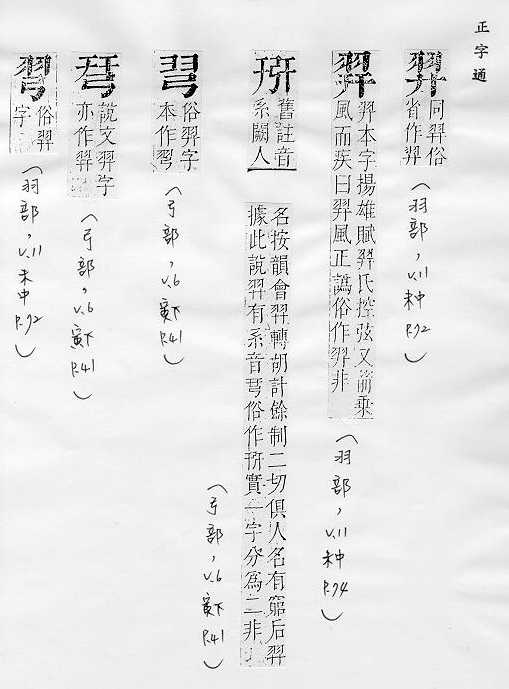 正字通
同羿俗
省作羿
(羽部,v.11未中P.92)
羿本字揚雄賦羿氏控弦又乘
風而疾曰羿風正譌俗作羿非
(羽部,v.11未中P.94)
舊註音
系闕人
名按韻會羿轉胡計餘制二切俱人名有窮后羿
據此說羿有系音俗作實一字分為二非
(弓部,v.6寅下P.41)
俗羿字
本作
(弓部,v.6寅下P.41)
說文羿字
亦作羿
(弓部,v.6寅下P.41)
俗羿
字
(羽部,v.11未中P.92)